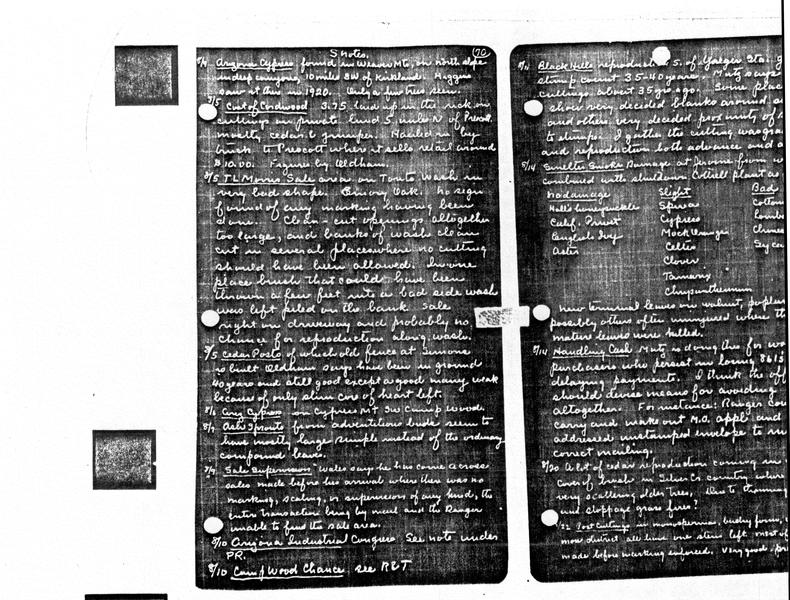 S notes. (70
8/4 Arizona Cypress found in Weaver Mt. on north slope
in deep canyons, 10 miles SW of Kirkland. Higgins
saw it then in 1920. Only a few trees seen.
8/5 Cut of Cordwood 3.75 laid up in the rick on
cuttings on private land 5 miles N of Presc.
mostly cedar & juniper. Hauled in by
truck to Prescott where it sells retail around
$10.00. Figures by Oldham.
8/5 T L Morris Sale area on Tonto Wash in
very bad shape. Emory Oak. No sign
found of any marking having been
done. Clean-cut openings altogether
too large, and banks of wash clean
cut in several places where no cutting
should have been allowed. In one
place brush that could have been
thrown a few feet into a bad side wash
was left piled on the bank. Sale
right on driveway and probably no
chance for reproduction along wash.
8/5 Cedar Posts of which old fence at Simons
is built Oldham says have been in ground
40 years and still good except a good many weak
because of only slim core of heart left.
8/6 Ariz Cypress on Cypress Mt SW Camp Wood.
8/7 Ash Sprouts from adventitious buds seem to
have mostly large simple instead of the ordinary
compound leaves.
8/9 Sale Supervision Wales says he has come across
sales made before his arrival where there was no
marking, scaling, or supervision of any kind, the
entire transaction being by mail and the Ranger
unable to find the sale area.
8/10 Arizona Industrial Congress See note under
PR.
8/10 Camp Wood Chance. see R&T
8/11 Black Hills reproduction S. of Yaeger Sta.
stump count 35-40 years. Mutz says
cuttings about 35 yrs ago. Some plac
show very decided blanks around
and others very decided proximity of
to stumps. I gather the cutting was gra
and reproduction both advance and
8/14 Smelter Smoke Damage at Jerome from
combined with shutdown Cottrell plant as
No damage Slight Bad
Hall's honeysuckle Spirea Cotton
Calif. Privet Cypress Lomb
English Ivy Mock Orange Chines
Aster Celtis
Clover
Tamarix
Chrysanthemum
new terminal leaves on walnut, poplar
possibly others often uninjured where th
mature leaves were killed.
8/14 Handling Cash Mutz is doing this for
purchasers who persist in losing 861s
delaying payments. I think the off
should devise means for avoiding
altogether. For instance: Ranger cou
carry and make out M.O. appl and
addressed unstamped envelope to
correct mailing.
8/20 A lot of cedar reproduction coming in
cover of brush in Silver Cr. country where
very scattering older trees. Due to thinning
and stoppage grass fires?
22 Post Cutting in monosperma, bushy form,
most district all have one stem left. most of
made before marking enforced. Very good